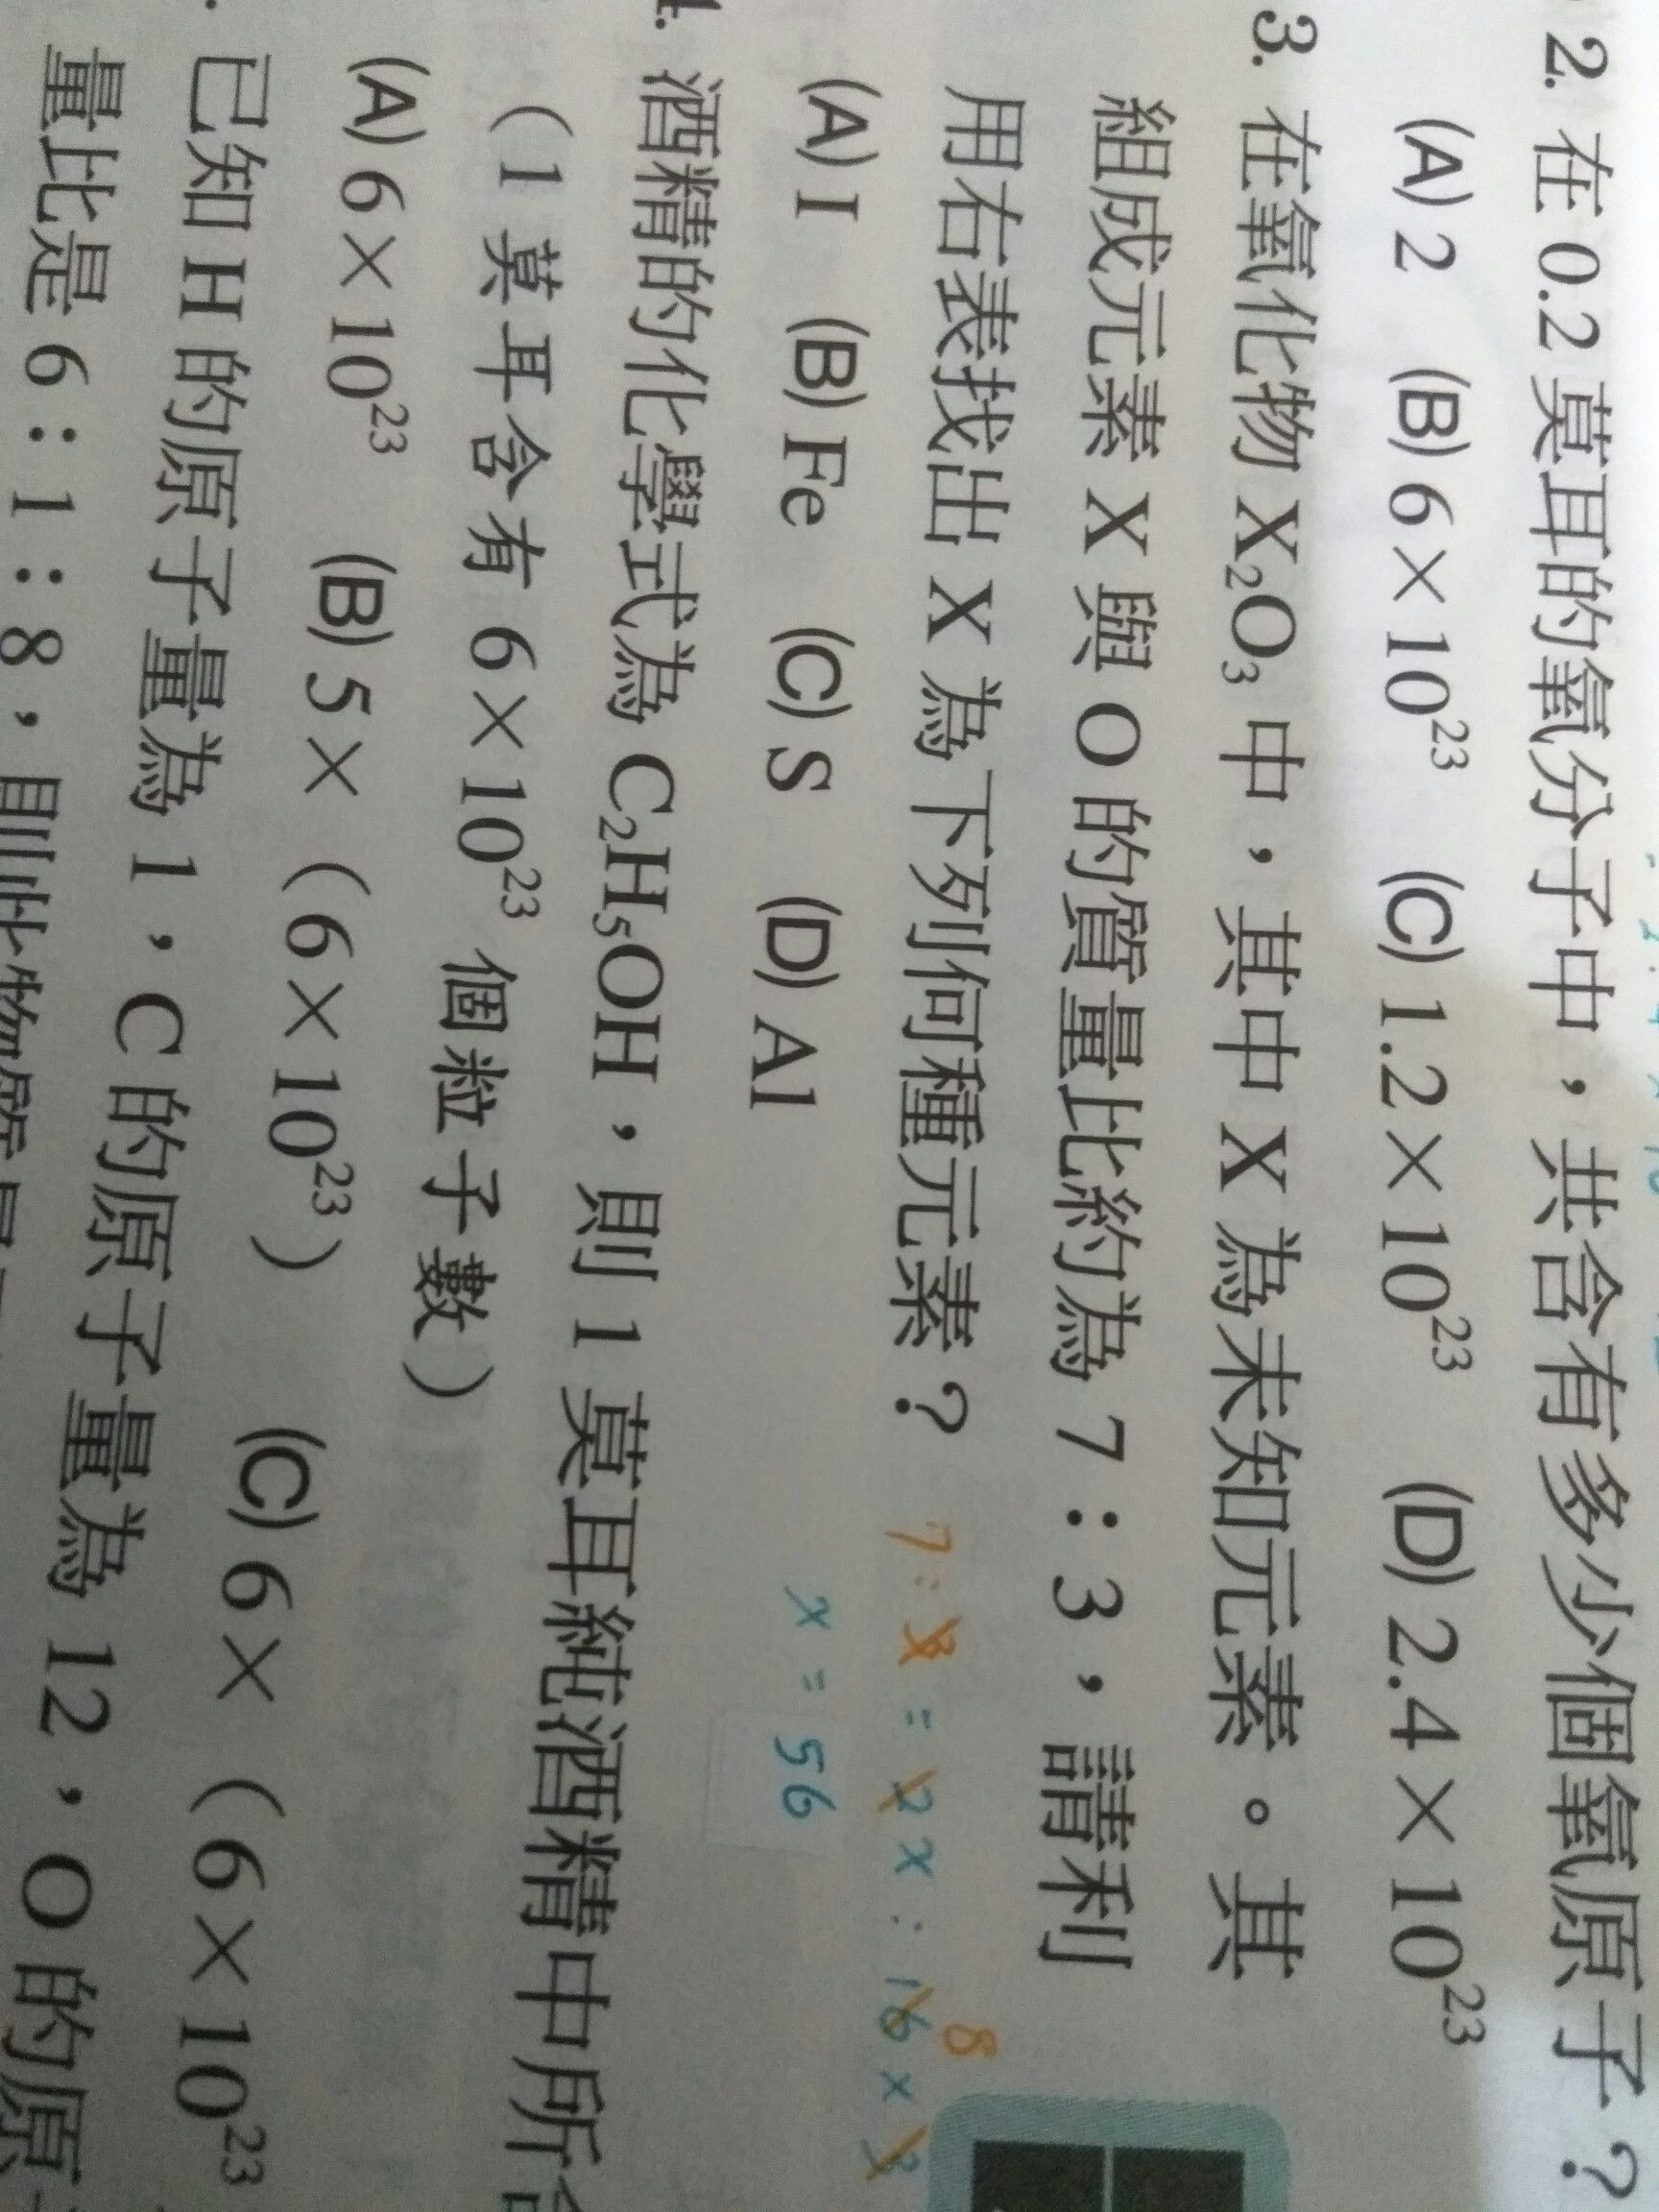 2. 在 0.2 莫耳的氧分子中，共含有多少個氧原子？
(A) 2 (B) 6×10²³ (C) 1.2×10²³ (D) 2.4×10²³
3. 在氧化物 X₂O₃ 中，其中 X 為未知元素。其
組成元素 X 與 O 的質量比約為 7：3，請利
用右表找出 X 為下列何種元素？
7:3 = 2x : 16×3
8
(A) I (B) Fe (C) S (D) Al
x = 56
4. 酒精的化學式為 C₂H₅OH，則 1 莫耳純酒精中所含
（1 莫耳含有 6×10²³ 個粒子數）
(A) 6×10²³ (B) 5×（6×10²³） (C) 6×（6×10²³
已知 H 的原子量為 1，C 的原子量為 12，O 的原
量比是 6：1：8，則此物質